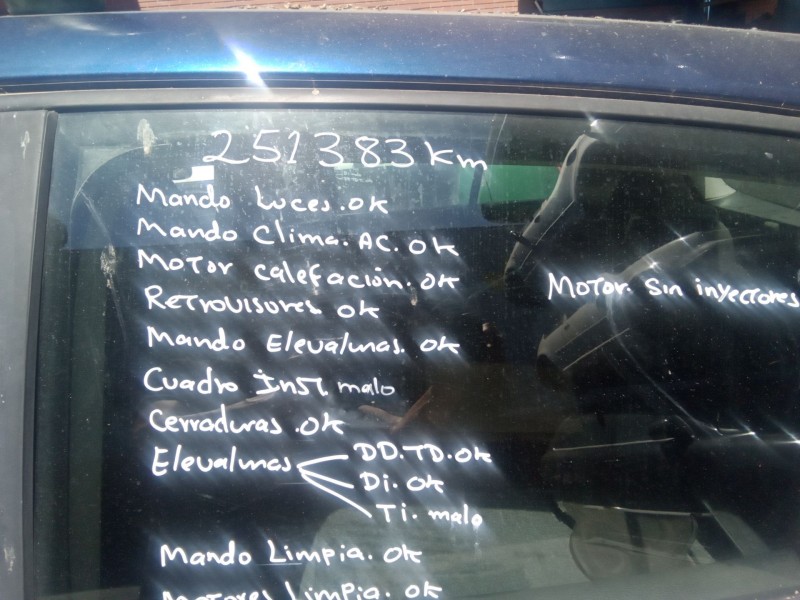 251383 km
Mando Luces. ok
Mando Clima. AC. ok
Motor calefación. ok
Retrovisores ok
Mando Elevalunas. ok
Cuadro Inst. malo
Cerraduras. ok
Elevalunas DD. TD. ok
Di. ok
Ti. malo
Mando Limpia. ok
Motores Limpia. ok
Motor. Sin inyectores